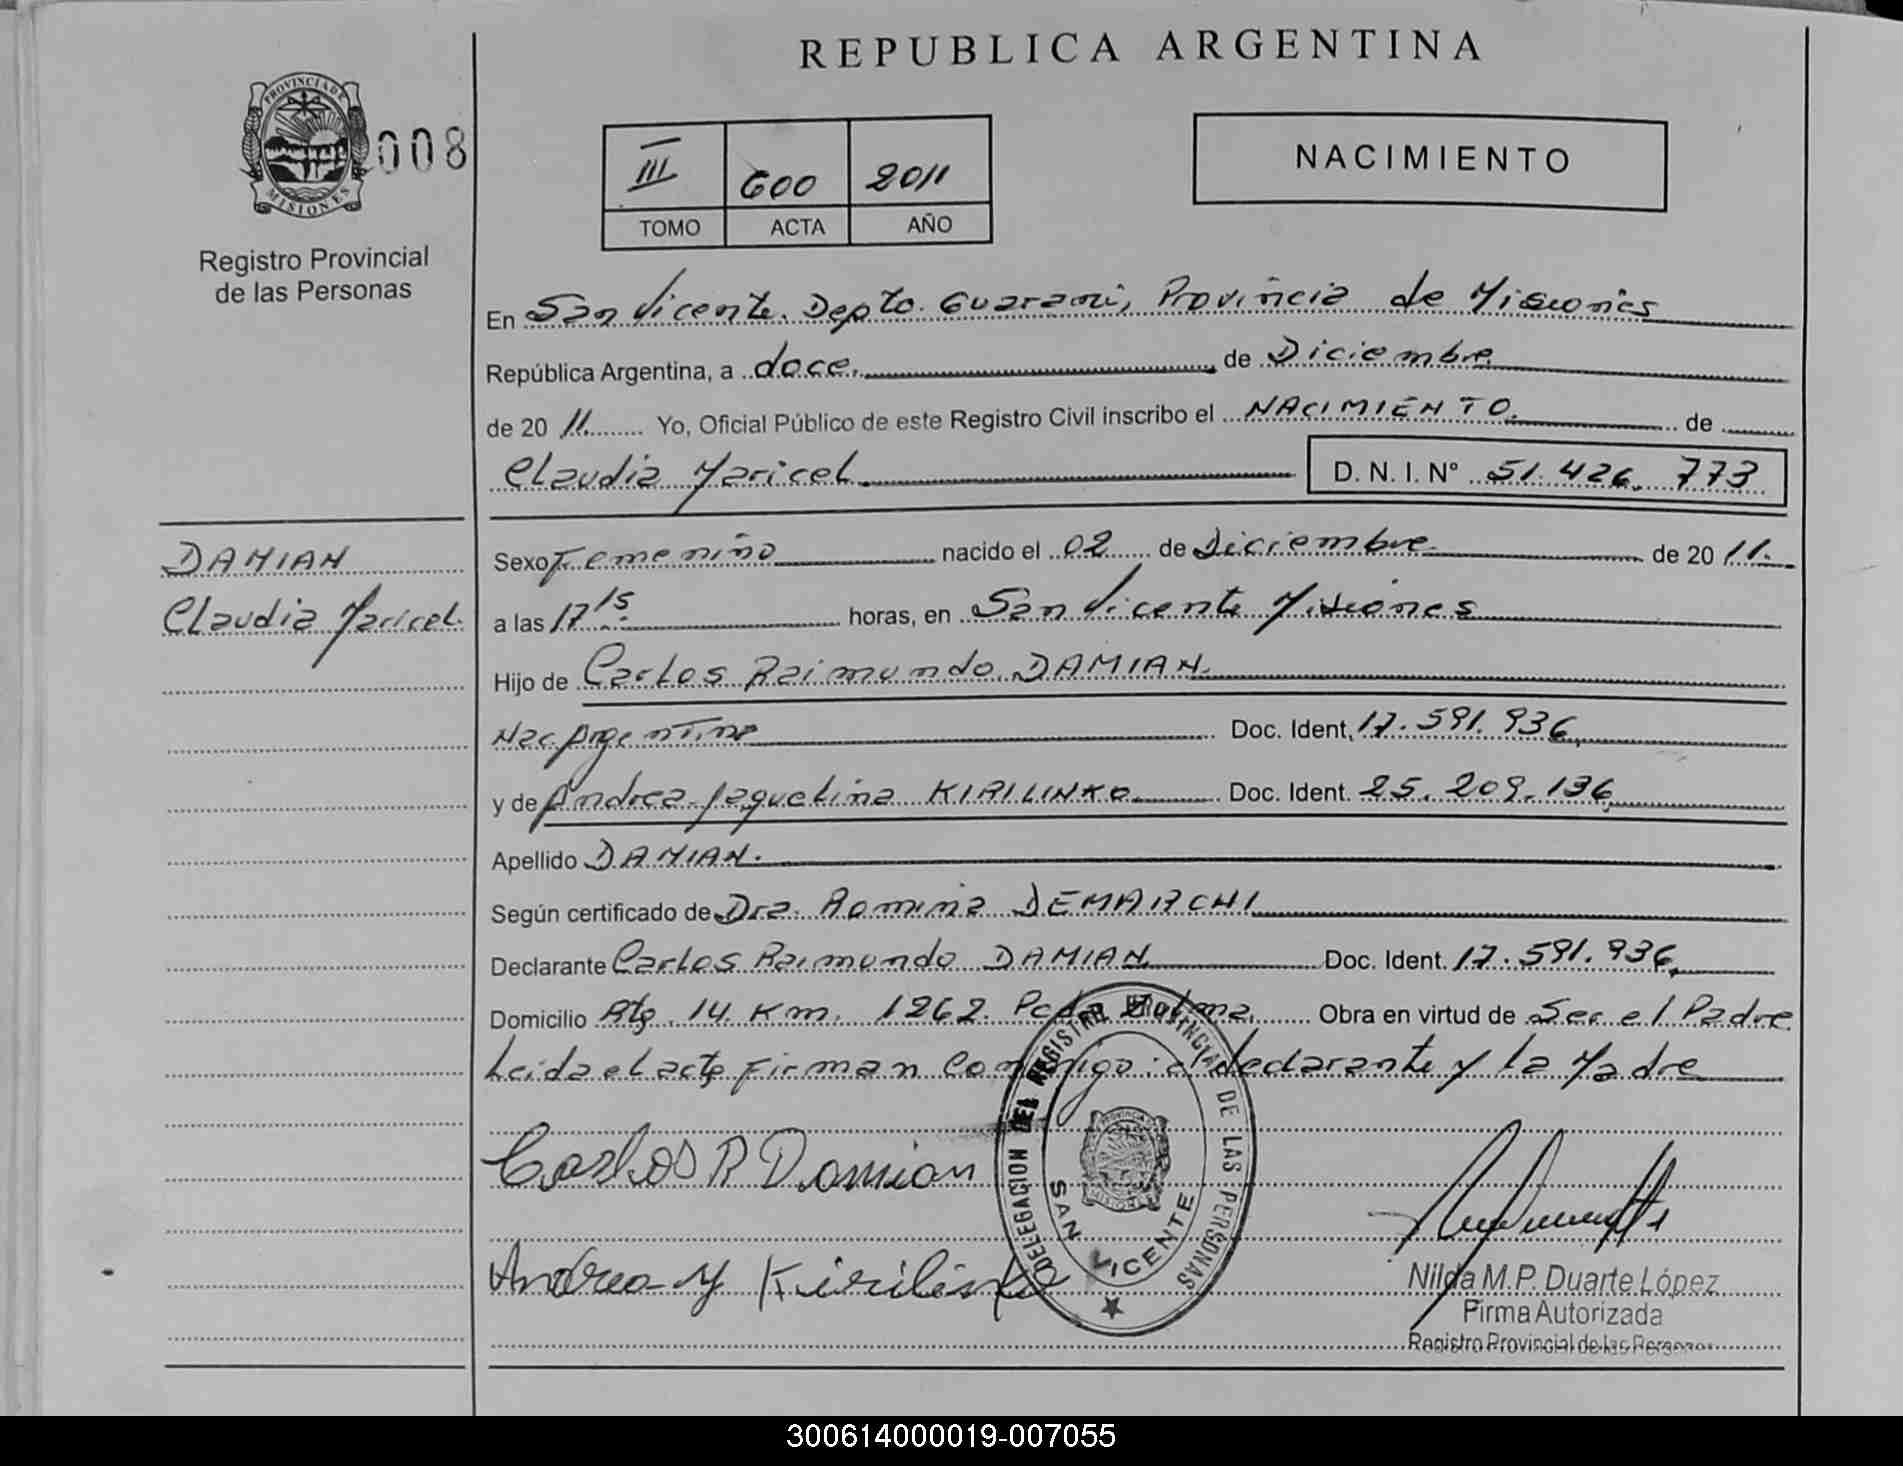 REPUBLICA ARGENTINA
PROVINCIA DE
MISIONES
008
Registro Provincial
de las Personas
III 600 2011
TOMO ACTA AÑO
NACIMIENTO
En San Vicente. Depto. Guarani, Provincia de Misiones
República Argentina, a doce. de Diciembre
de 20 11. Yo, Oficial Público de este Registro Civil inscribo el NACIMIENTO. de
Claudia Maricel D. N. I. N° 51.426.773
DAMIAN
Claudia Maricel.
Sexo Femenino nacido el 02 de Diciembre de 20 11.
a las 17 15 horas, en San Vicente Misiones
Hijo de Carlos Raimundo DAMIAN.
Nac Argentino Doc. Ident, 17.591.936,
y de Andrea Jaquelina KIRILINKO Doc. Ident. 25.209.136,
Apellido DAMIAN.
Según certificado de Dra. Romina DEMARCHI
Declarante Carlos Raimundo DAMIAN Doc. Ident. 17.591.936,
Domicilio Rta. 14 Km. 1262. Obra en virtud de Ser el Padre
Leida el acta firman Conmigo: el declarante y la Madre
Carlos R Damian
Andrea Y Kirilinko
DELEGACION DEL REGISTRO PROVINCIAL DE LAS PERSONAS
SAN VICENTE
Nilda M.P. Duarte López
Firma Autorizada
Registro Provincial de las Personas
300614000019-007055